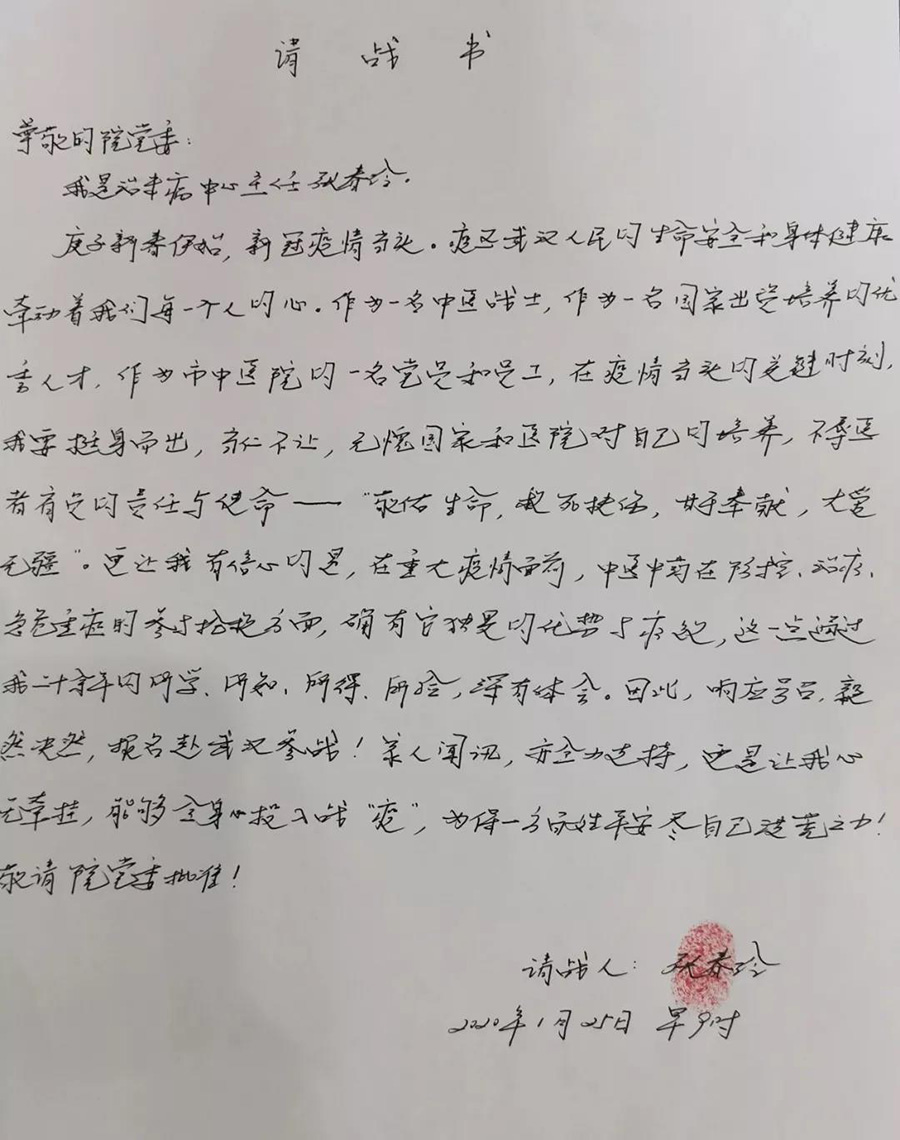 请战书
尊敬的院党委：
我是治未病中心主任张春玲.
庚子新春伊始，新冠疫情当头。疫区武汉人民的生命安全和身体健康
牵动着我们每一个人的心。作为一名中医战士，作为一名国家出资培养的优
秀人才，作为市中医院的一名党员和员工，在疫情当头的关键时刻，
我要挺身而出，当仁不让，无愧国家和医院对自己的培养，不辱医
者肩负的责任与使命——“敬佑生命，救死扶伤，甘于奉献，大爱
无疆”。更让我有信心的是，在重大疫情面前，中医中药在防控、治疗、
急危重症的参与抢救方面，确有它独具的优势与疗效，这一点通过
我二十余年的所学、所知、所得、所验，深有体会。因此，响应号召，毅
然决然，报名赴武汉参战！家人闻讯，亦全力支持，更是让我心
无牵挂，能够全身心投入战“疫”，为保一方百姓平安尽自己洪荒之力！
敬请院党委批准！
请战人：张春玲
2020年1月25日 早9时